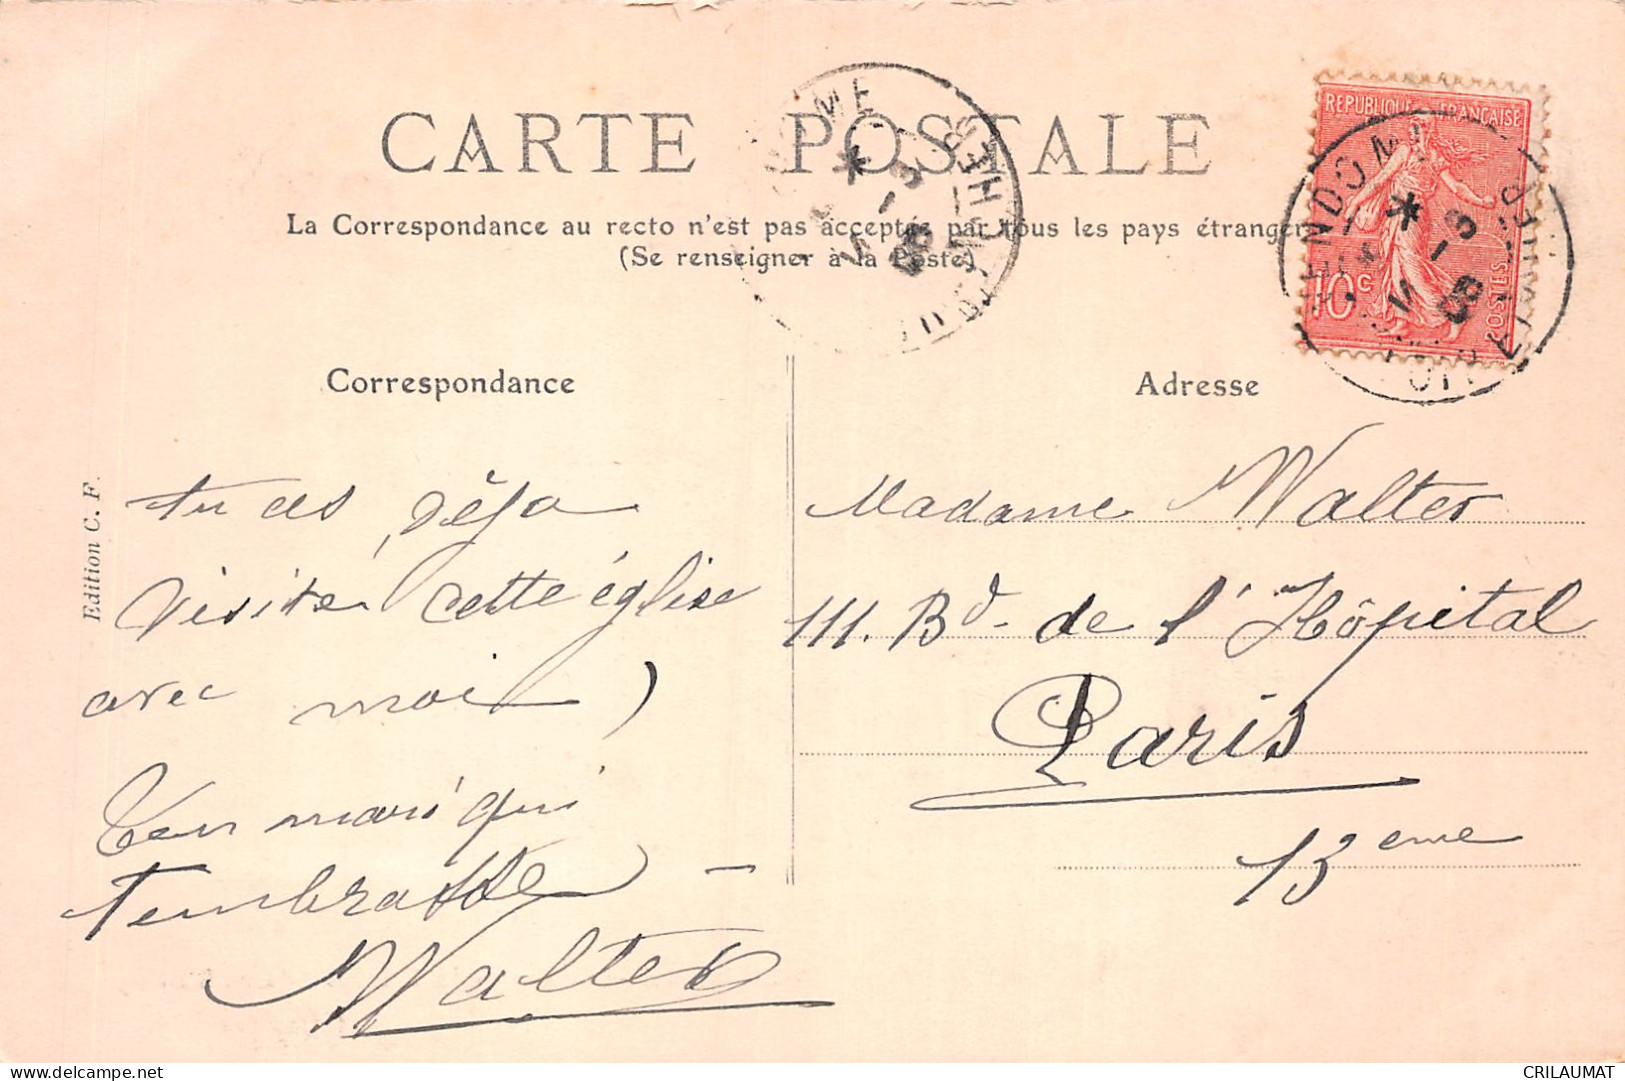 CARTE POSTALE
La Correspondance au recto n'est pas acceptée par tous les pays étrangers
(Se renseigner à la Poste)
REPUBLIQUE FRANÇAISE
10 c
POSTES
VENDOME
LOIR-ET-CHER
Correspondance
Adresse
Edition C. F.
tu as déja
visité cette église
avec moi
Ton mari qui
t'embrasse
Walter
Madame Walter
111. Bd. de l'Hôpital
Paris
13eme
delcampe.net
CRILAUMAT